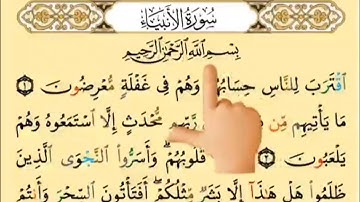 سُورَةُ الأَنبِيَاءِ
بِسْمِ اللَّهِ الرَّحْمَٰنِ الرَّحِيمِ
اقْتَرَبَ لِلنَّاسِ حِسَابُهُمْ وَهُمْ فِي غَفْلَةٍ مُّعْرِضُونَ ١
مَا يَأْتِيهِم مِّن رَّبِّهِم مُّحْدَثٍ إِلَّا اسْتَمَعُوهُ وَهُمْ
يَلْعَبُونَ ٢ قُلُوبُهُمْ وَأَسَرُّوا النَّجْوَى الَّذِينَ
ظَلَمُوا هَلْ هَٰذَا إِلَّا بَشَرٌ مِّثْلُكُمْ أَفَتَأْتُونَ السِّحْرَ وَأَنتُمْ